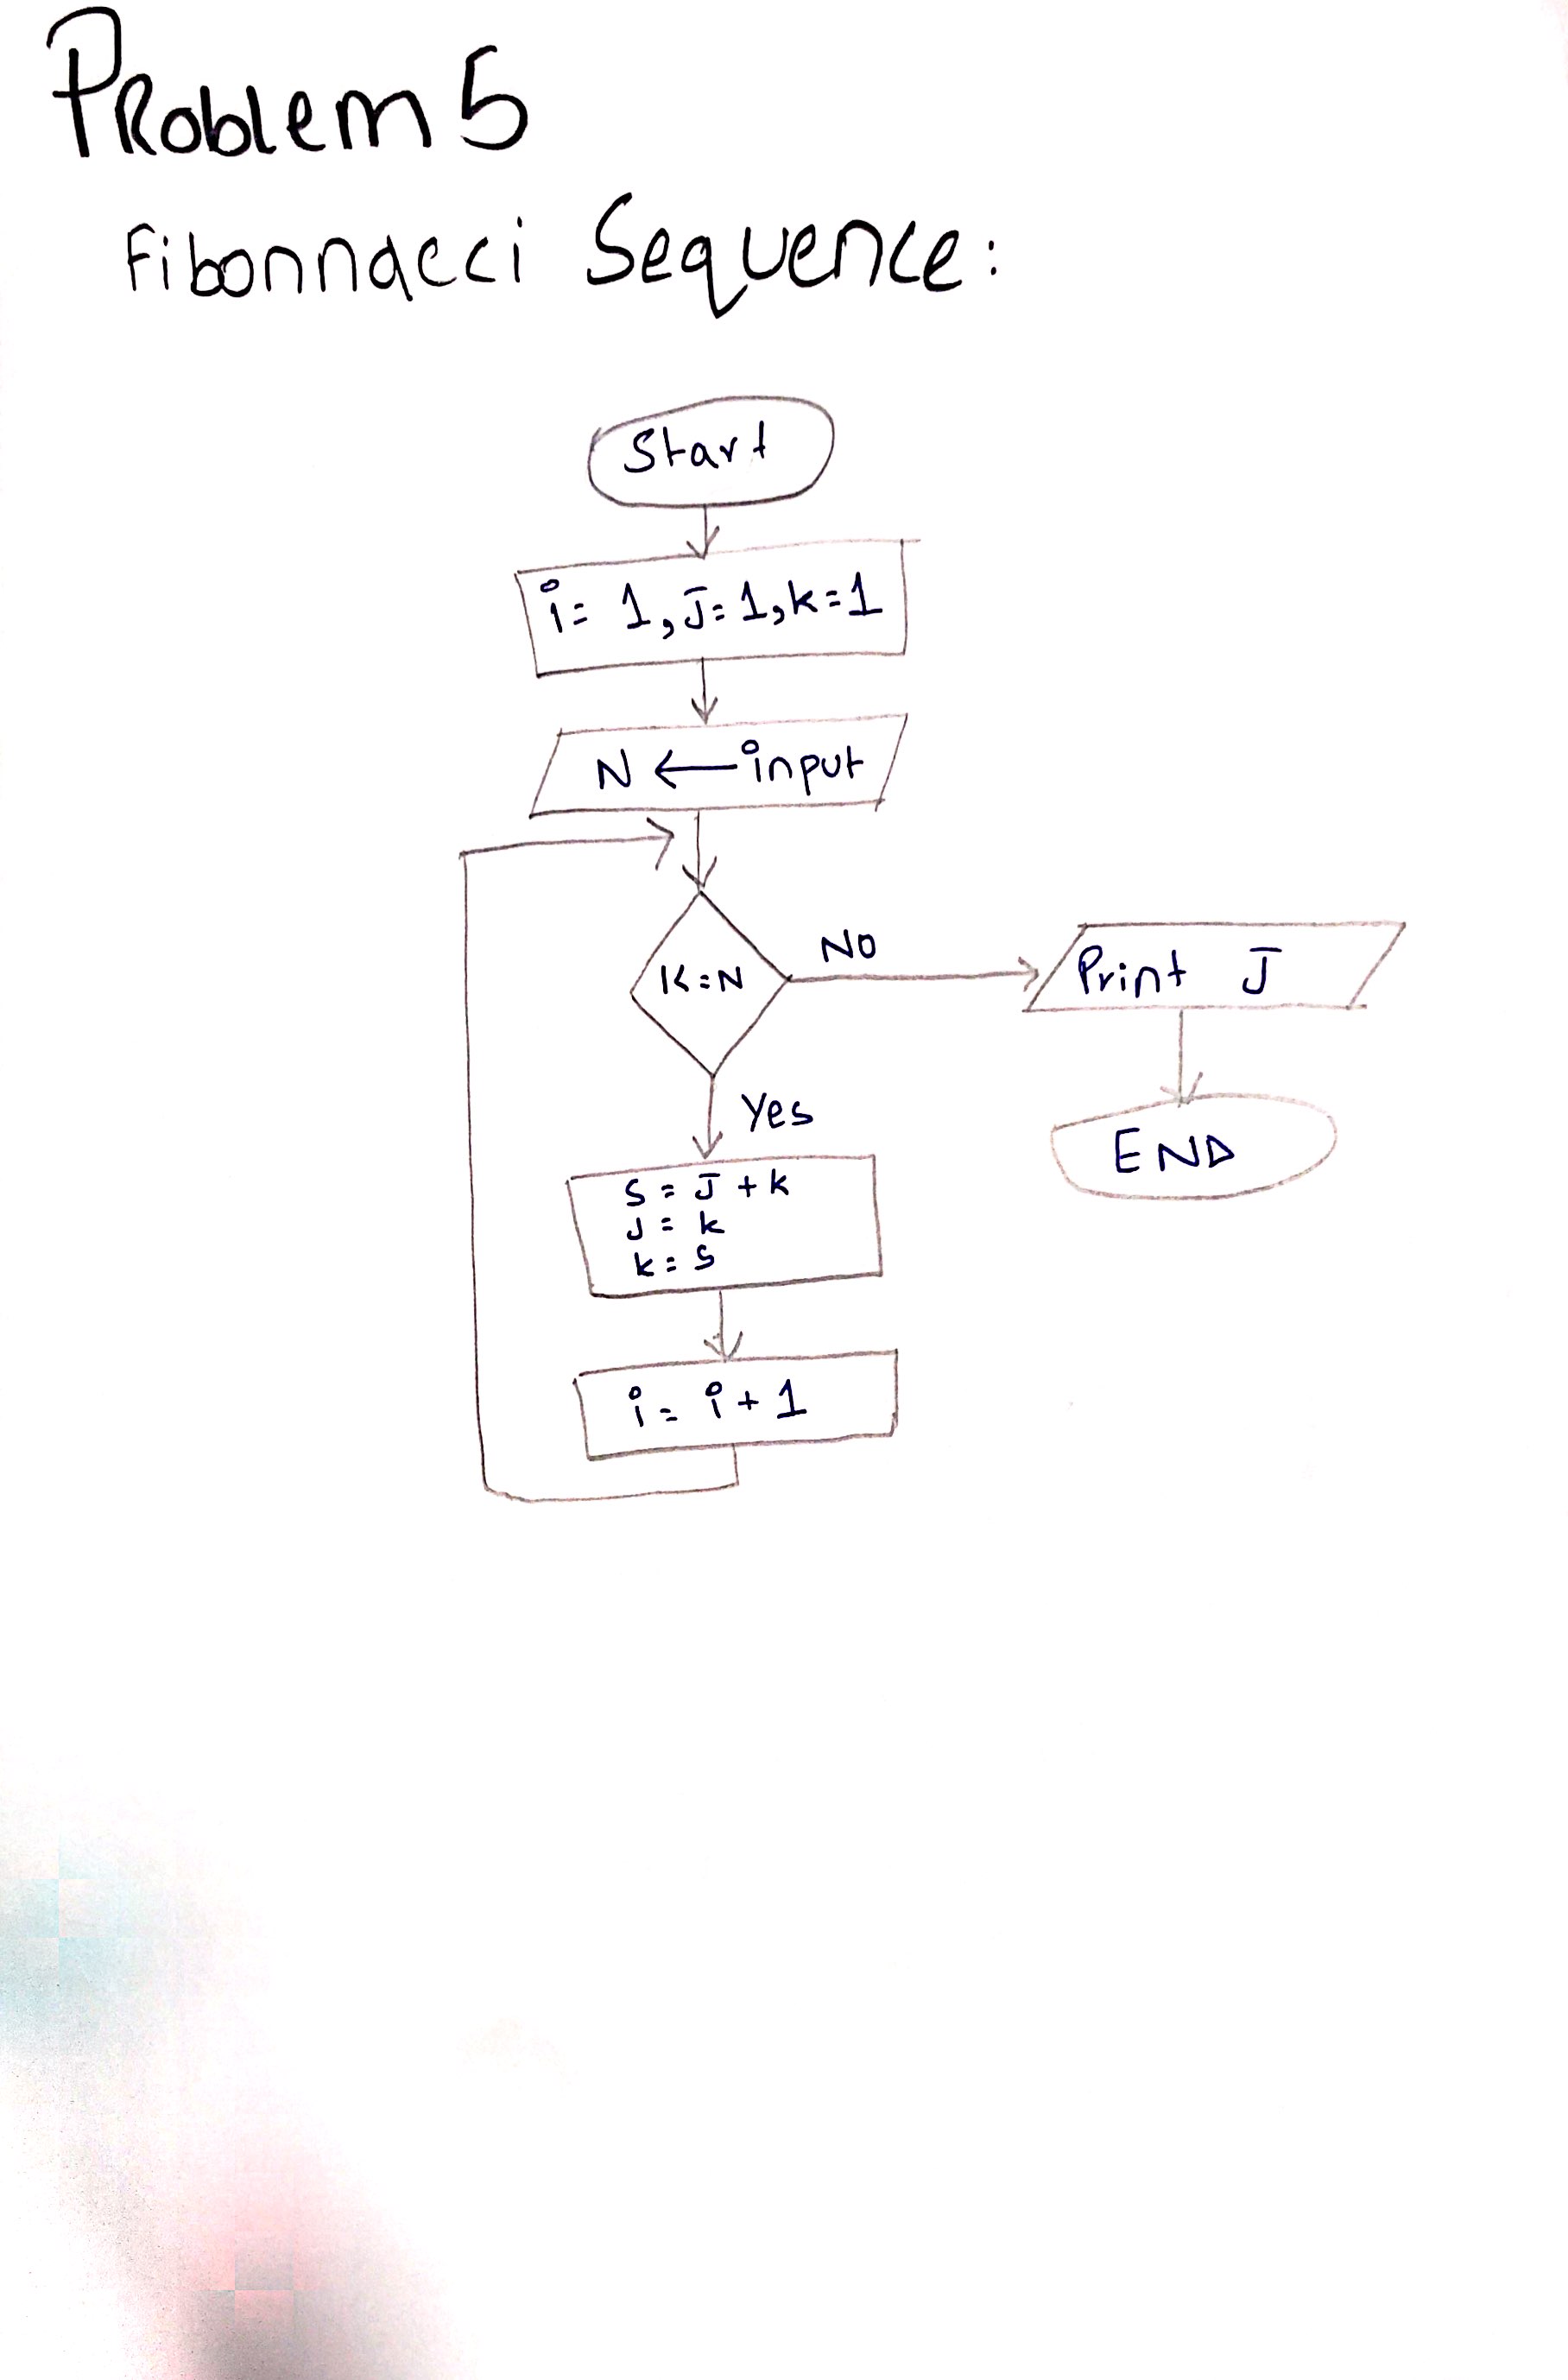 Problem 5
Fibonnacci Sequence:
Start
i = 1, J = 1, k = 1
N ← input
K = N
No
Print J
Yes
END
S = J + k
J = k
k = S
i = i + 1